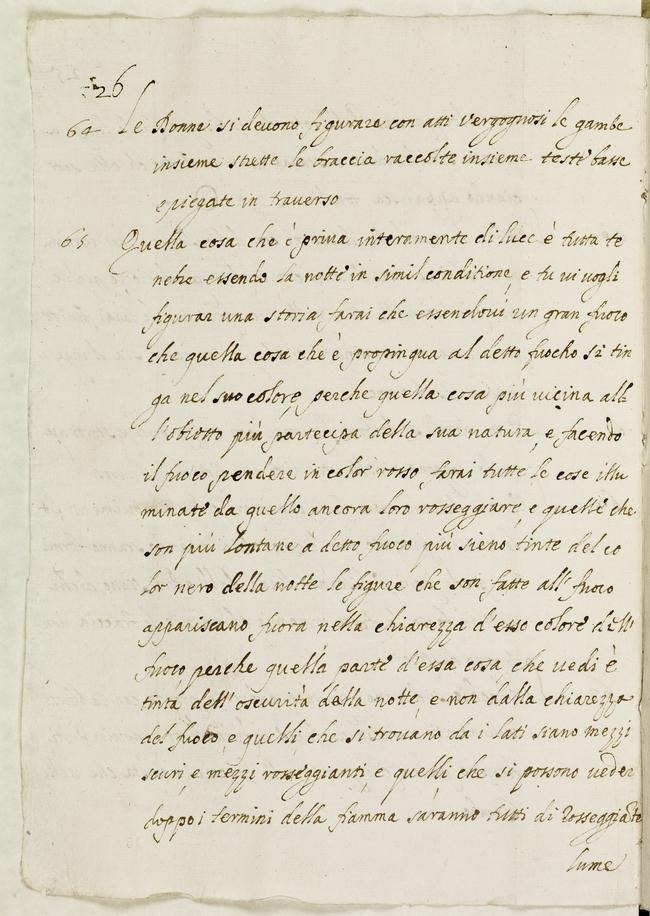 26
64 Le Donne si deuono figurare con atti vergognosi le gambe
insieme strette le braccia raccolte insieme teste basse
e piegate in trauerso
65 Quella cosa che è priua interamente di luce è tutta te
nebre essendo la notte in simil conditione, e tu vi vogli
figurar una storia farai che essendoui un gran fuoco
che quella cosa che è propinqua al detto fuocho si tin
ga nel suo colore, perche quella cosa più vicina all
l'obiotto più partecipa della sua natura, e facendo
il fuoco pendere in color rosso, farai tutte le cose illu
minate da quello ancora loro rosseggiare, e quelle che
son più lontane à detto fuoco più sieno tinte del co
lor nero della notte le figure che son fatte all' fuoco
appariscano fuora nella chiarezza d'esso colore dell'
fuoco perche quella parte d'essa cosa, che uedi è
tinta dell' oscurità della notte, e non dalla chiarezza
del fuoco, e quelli che si trouano da i lati siano mezzi
scuri, e mezzi rosseggianti, e quelli che si possono ueder
doppo i termini della fiamma saranno tutti di rosseggiãte
lume